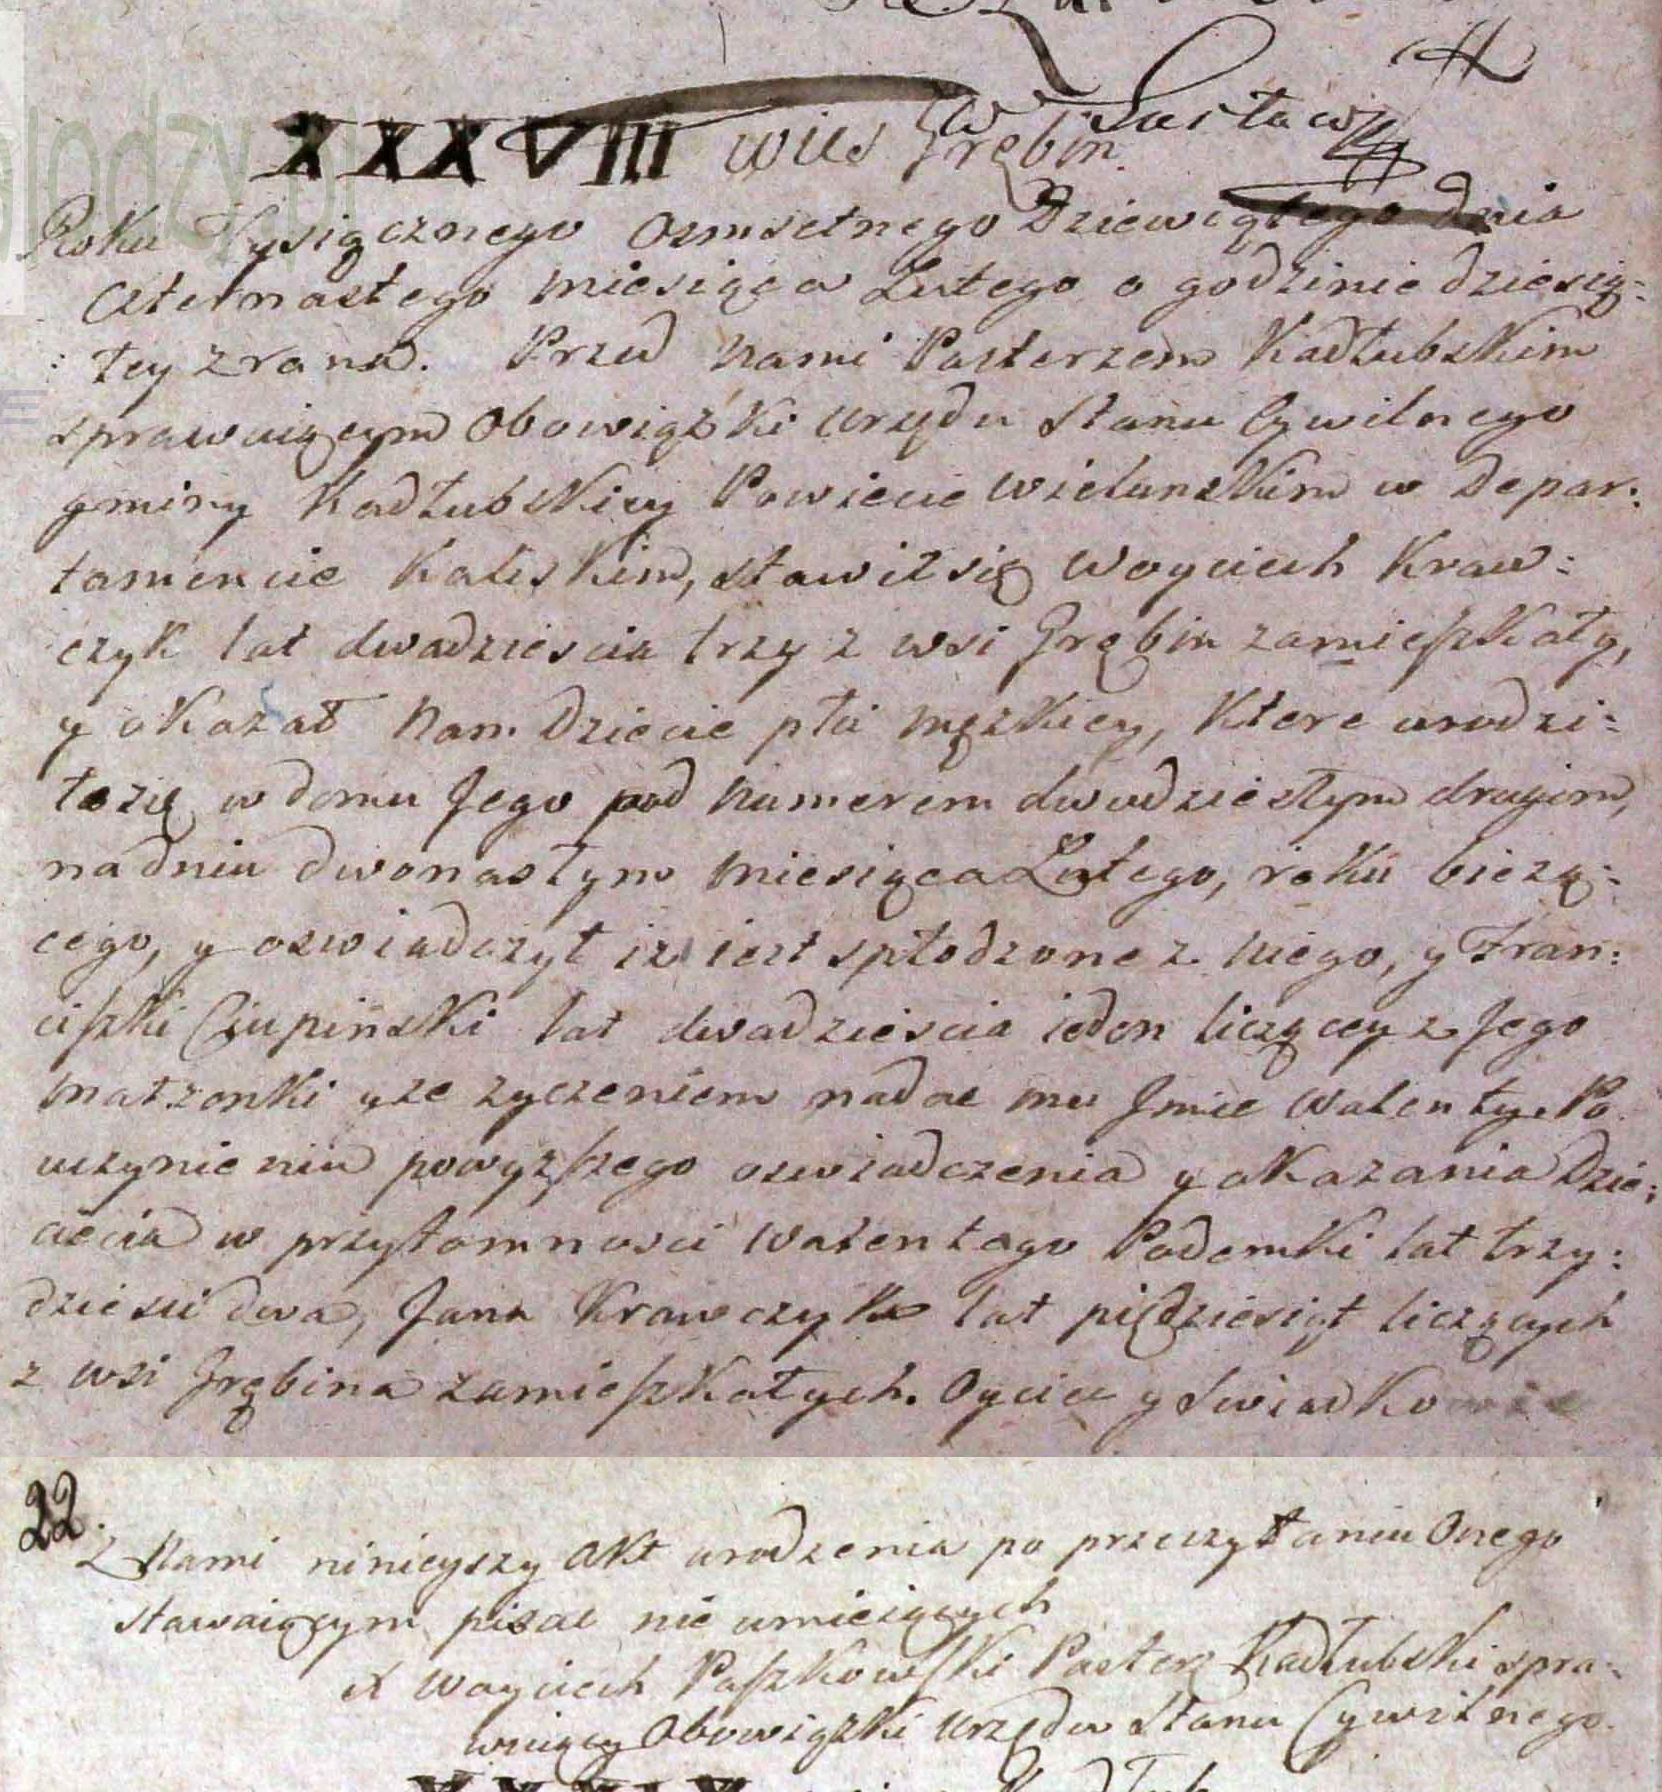 XXXVIII wies Grębin
Roku Tysiącznego Osmsetnego Dziewiątego Dnia
czternastego miesiąca Lutego o godzinie dziesią:
: tey zrana. Przed nami Pasterzem Kadłubskim
sprawuiącym Obowiązki urzędu Stanu Cywilnego
gminy Kadłubskiey Powiecie Wielunskim w Depar:
tamencie Kaliskim, stawił się Woyciech Kraw:
czyk lat dwadziescia trzy z wsi Grębin zamieszkały,
y okazał nam Dziecie płci męzkiey, ktore urodzi:
ło zię w domu Jego pod numerem dwudziestym drugim,
na dniu dwonastym miesiąca Lutego, roku bieżą:
cego, y oswiadczył iz iest spłodzone z niego, y Fran:
ciszki Ciupinski lat dwadziescia ieden liczącey z Jego
małzonki y ze zyczeniem nadac mu Jmie Walenty. Po
uczynieniu powyższego oswiadczenia y okazania Dzie:
ciecia w przytomnosci Walentego Podemki lat trzy:
dziesci dwa, Jana Krawczyka lat piędziesiąt liczących
z wsi Grębina zamieszkałych. Oyciec y Swiadko
22.
z Nami ninieyszy Akt urodzenia po przeczytaniu Onego
stawaiącym pisac nie umieiących
X Woyciech Paszkowski Pasterz Kadłubski spra:
wuiący Obowiązki Urzędu Stanu Cywilnego.